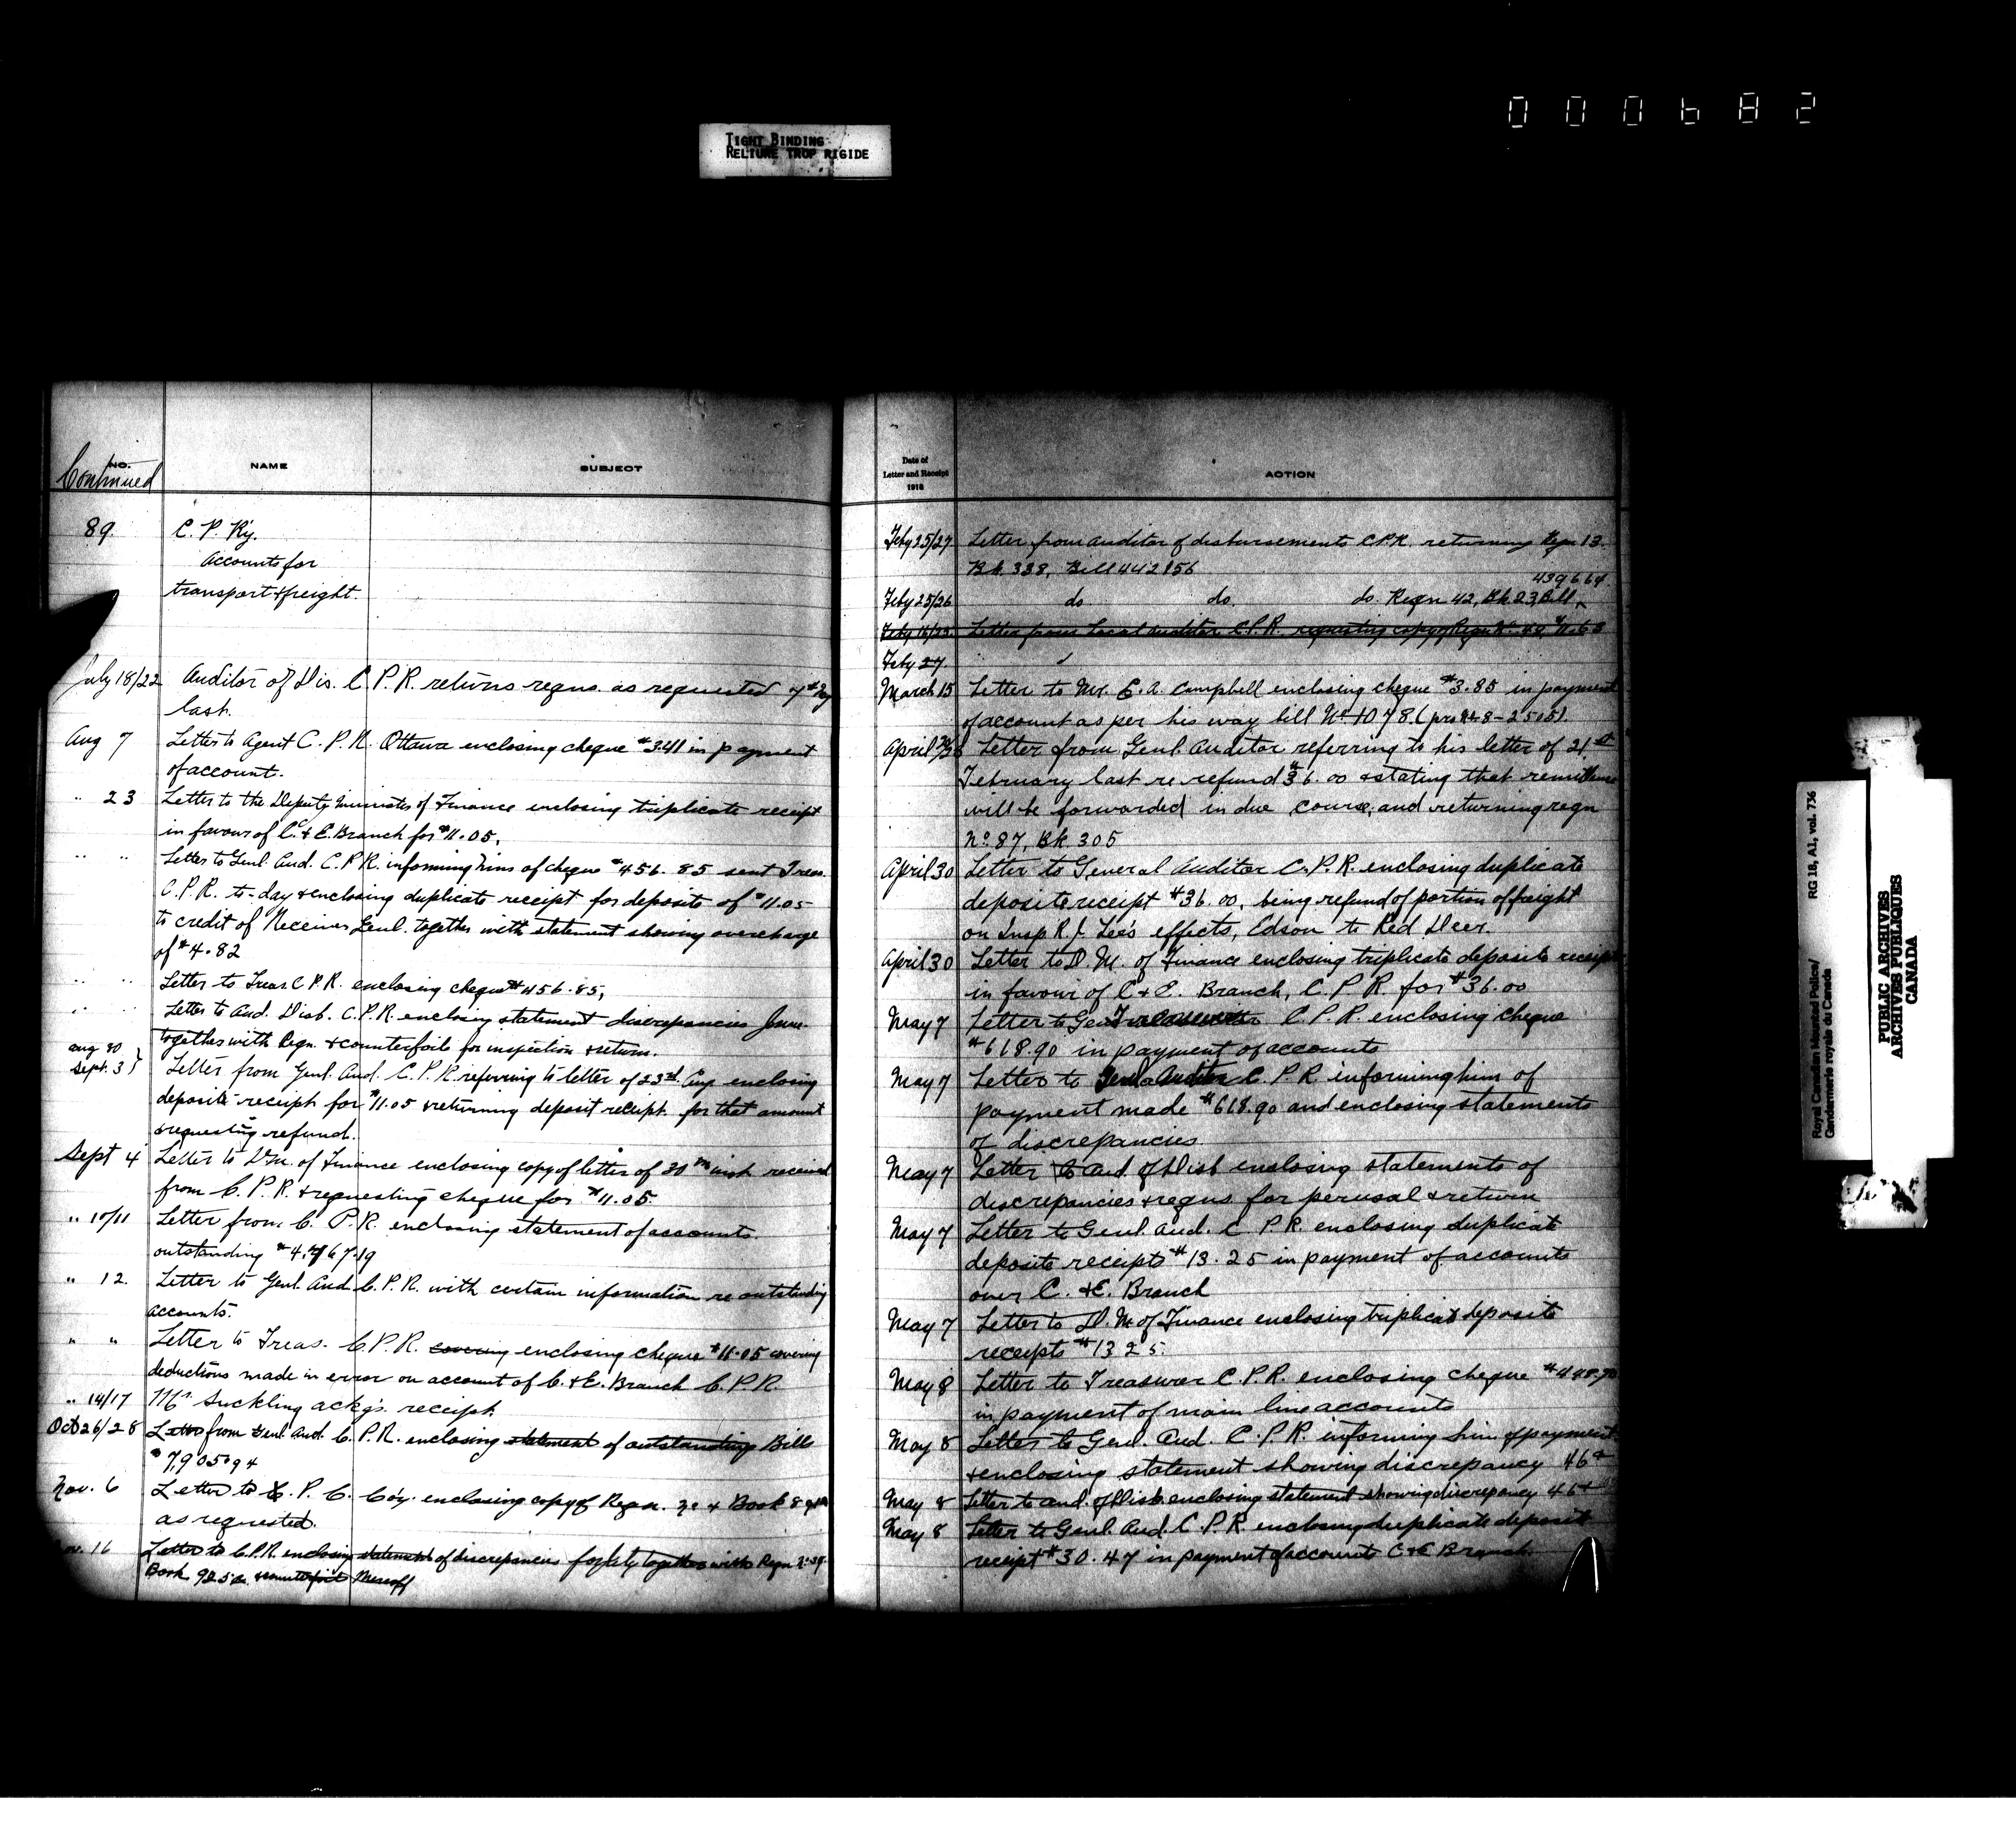 000682
TIGHT BINDING
RELIURE TROP RIGIDE
NO. NAME SUBJECT
Continued
89. C. P. Ry.
Accounts for
transport & freight.
July 18/22 Auditor of Dis. C. P. R. returns reqns. as requested
last.
Aug 7 Letter to Agent C. P. R. Ottawa enclosing cheque $3.41 in payment
of account.
" 23 Letter to the Deputy Minister of Finance enclosing triplicate receipt
in favour of C. & E. Branch for $11.05.
" " Letter to Genl. Aud. C.P.R. informing him of cheque $456.85 sent Treas.
C.P.R. to-day & enclosing duplicate receipt for deposits of $11.05
to credit of Receiver Genl. together with statement showing overcharge
of $4.82
" " Letter to Treas. C.P.R. enclosing cheque $456.85,
" " Letter to Aud. Disb. C.P.R. enclosing statement discrepancies
together with Reqn. & counterfoils for inspection & return.
Aug 30
Sept. 3} Letter from Genl. Aud. C.P.R. referring to letter of 23rd. Aug enclosing
deposit receipt for $11.05 & returning deposit receipt for that amount
& requesting refund.
Sept 4 Letter to D.M. of Finance enclosing copy of letter of 30th inst. received
from C.P.R. & requesting cheque for $11.05.
" 10/11 Letter from C. P. R. enclosing statement of accounts
outstanding
" 12. Letter to Genl. Aud. C.P.R. with certain information re outstanding
accounts.
" " Letter to Treas. C.P.R. covering enclosing cheque $11.05 covering
deductions made in error on account of C. & E. Branch C.P.R.
" 14/17 Mr. Suckling ackg's. receipt.
Oct 26/28 Letter from Genl. Aud. C.P.R. enclosing statement of outstanding Bills
$7,905.94
Nov. 6 Letter to C. P. C. Co'y. enclosing copy of Reqn. & Book
as requested.
16 Letter to C.P.R. enclosing statement of discrepancies together with Reqn
Book 925 & counterfoil thereoff
Date of
Letter and Receipt
1918
ACTION
Feby 25/27 Letter from auditor of disbursements C.P.R. returning Reqn 13.
Bk. 338, Bill 442156
439664
Feby 25/26 do do. do. Reqn 42, Bk. 23, Bill
Feby 18/23 Letter from Local Auditor C.P.R. requesting copy of Reqn No. 40, $11.63
Feby 27.
March 15 Letter to Mr. C. A. Campbell enclosing cheque $3.85 in payment
of account as per his way bill No. 1078.
April Letter from Genl. Auditor referring to his letter of 21st
February last re refund $36.00 & stating that remittance
will be forwarded in due course, and returning reqn
No. 87, Bk. 305
April 30 Letter to General Auditor C.P.R. enclosing duplicate
deposit receipt $36.00, being refund of portion of freight
on Insp R. J. Lee's effects, Edson to Red Deer.
April 30 Letter to D. M. of Finance enclosing triplicate deposit receipt
in favour of C & E. Branch, C.P.R. for $36.00
May 7 Letter to Gen Treasurer C.P.R. enclosing cheque
$618.90 in payment of accounts
May 7 Letter to Genl Auditor C. P. R informing him of
payment made $618.90 and enclosing statements
of discrepancies
May 7 Letter to Aud. of Disb enclosing statements of
discrepancies & reqns. for perusal & return
May 7 Letter to Genl. Aud. C. P. R. enclosing duplicate
deposit receipts $13.25 in payment of accounts
over C. & E. Branch
May 7 Letter to D. M. of Finance enclosing triplicate deposit
receipts $13 25.
May 8 Letter to Treasurer C.P.R. enclosing cheque
in payment of main line accounts
May 8 Letter to Genl. Aud. C.P.R. informing him of payment
& enclosing statement showing discrepancy 46¢
May 8 Letter to Aud. of Disb. enclosing statement showing discrepancy 46¢
May 8 Letter to Genl. Aud. C.P.R. enclosing duplicate deposit
receipt $30.47 in payment of accounts C & E Branch.
Royal Canadian Mounted Police/ RG 18, A1, vol. 736
Gendarmerie royale du Canada
PUBLIC ARCHIVES
ARCHIVES PUBLIQUES
CANADA